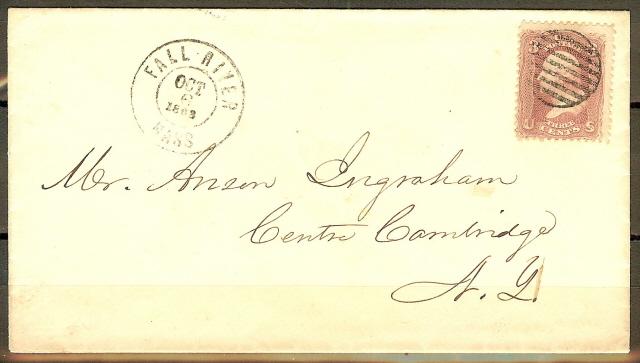 FALL-RIVER
OCT
1862
MASS
3 3
U THREE S
CENTS
Mr. Anson Ingraham
Centre Cambridge
N. Y.